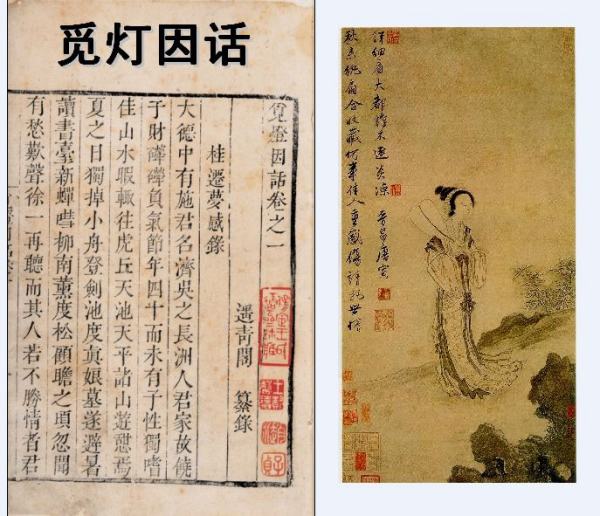 觅灯因话
覓燈因話卷之一
桂遷夢感錄
遥青閣 纂錄
大德中有施君名濟吳之長洲人君家故饒
于財磷磷負氣節年四十而未有子性獨嗜
佳山水暇輒往虎丘天池天平諸山遊憩焉
夏之日獨掉小舟登劍池度眞娘墓遂避暑
讀書臺新蟬嘒柳南薰度松顧瞻之頃忽聞
有愁歎聲徐一再聽而其人若不勝情者君
秋來紈扇合收藏何事佳人重感傷請把世情
詳細看大都誰不逐炎涼 晉昌唐寅